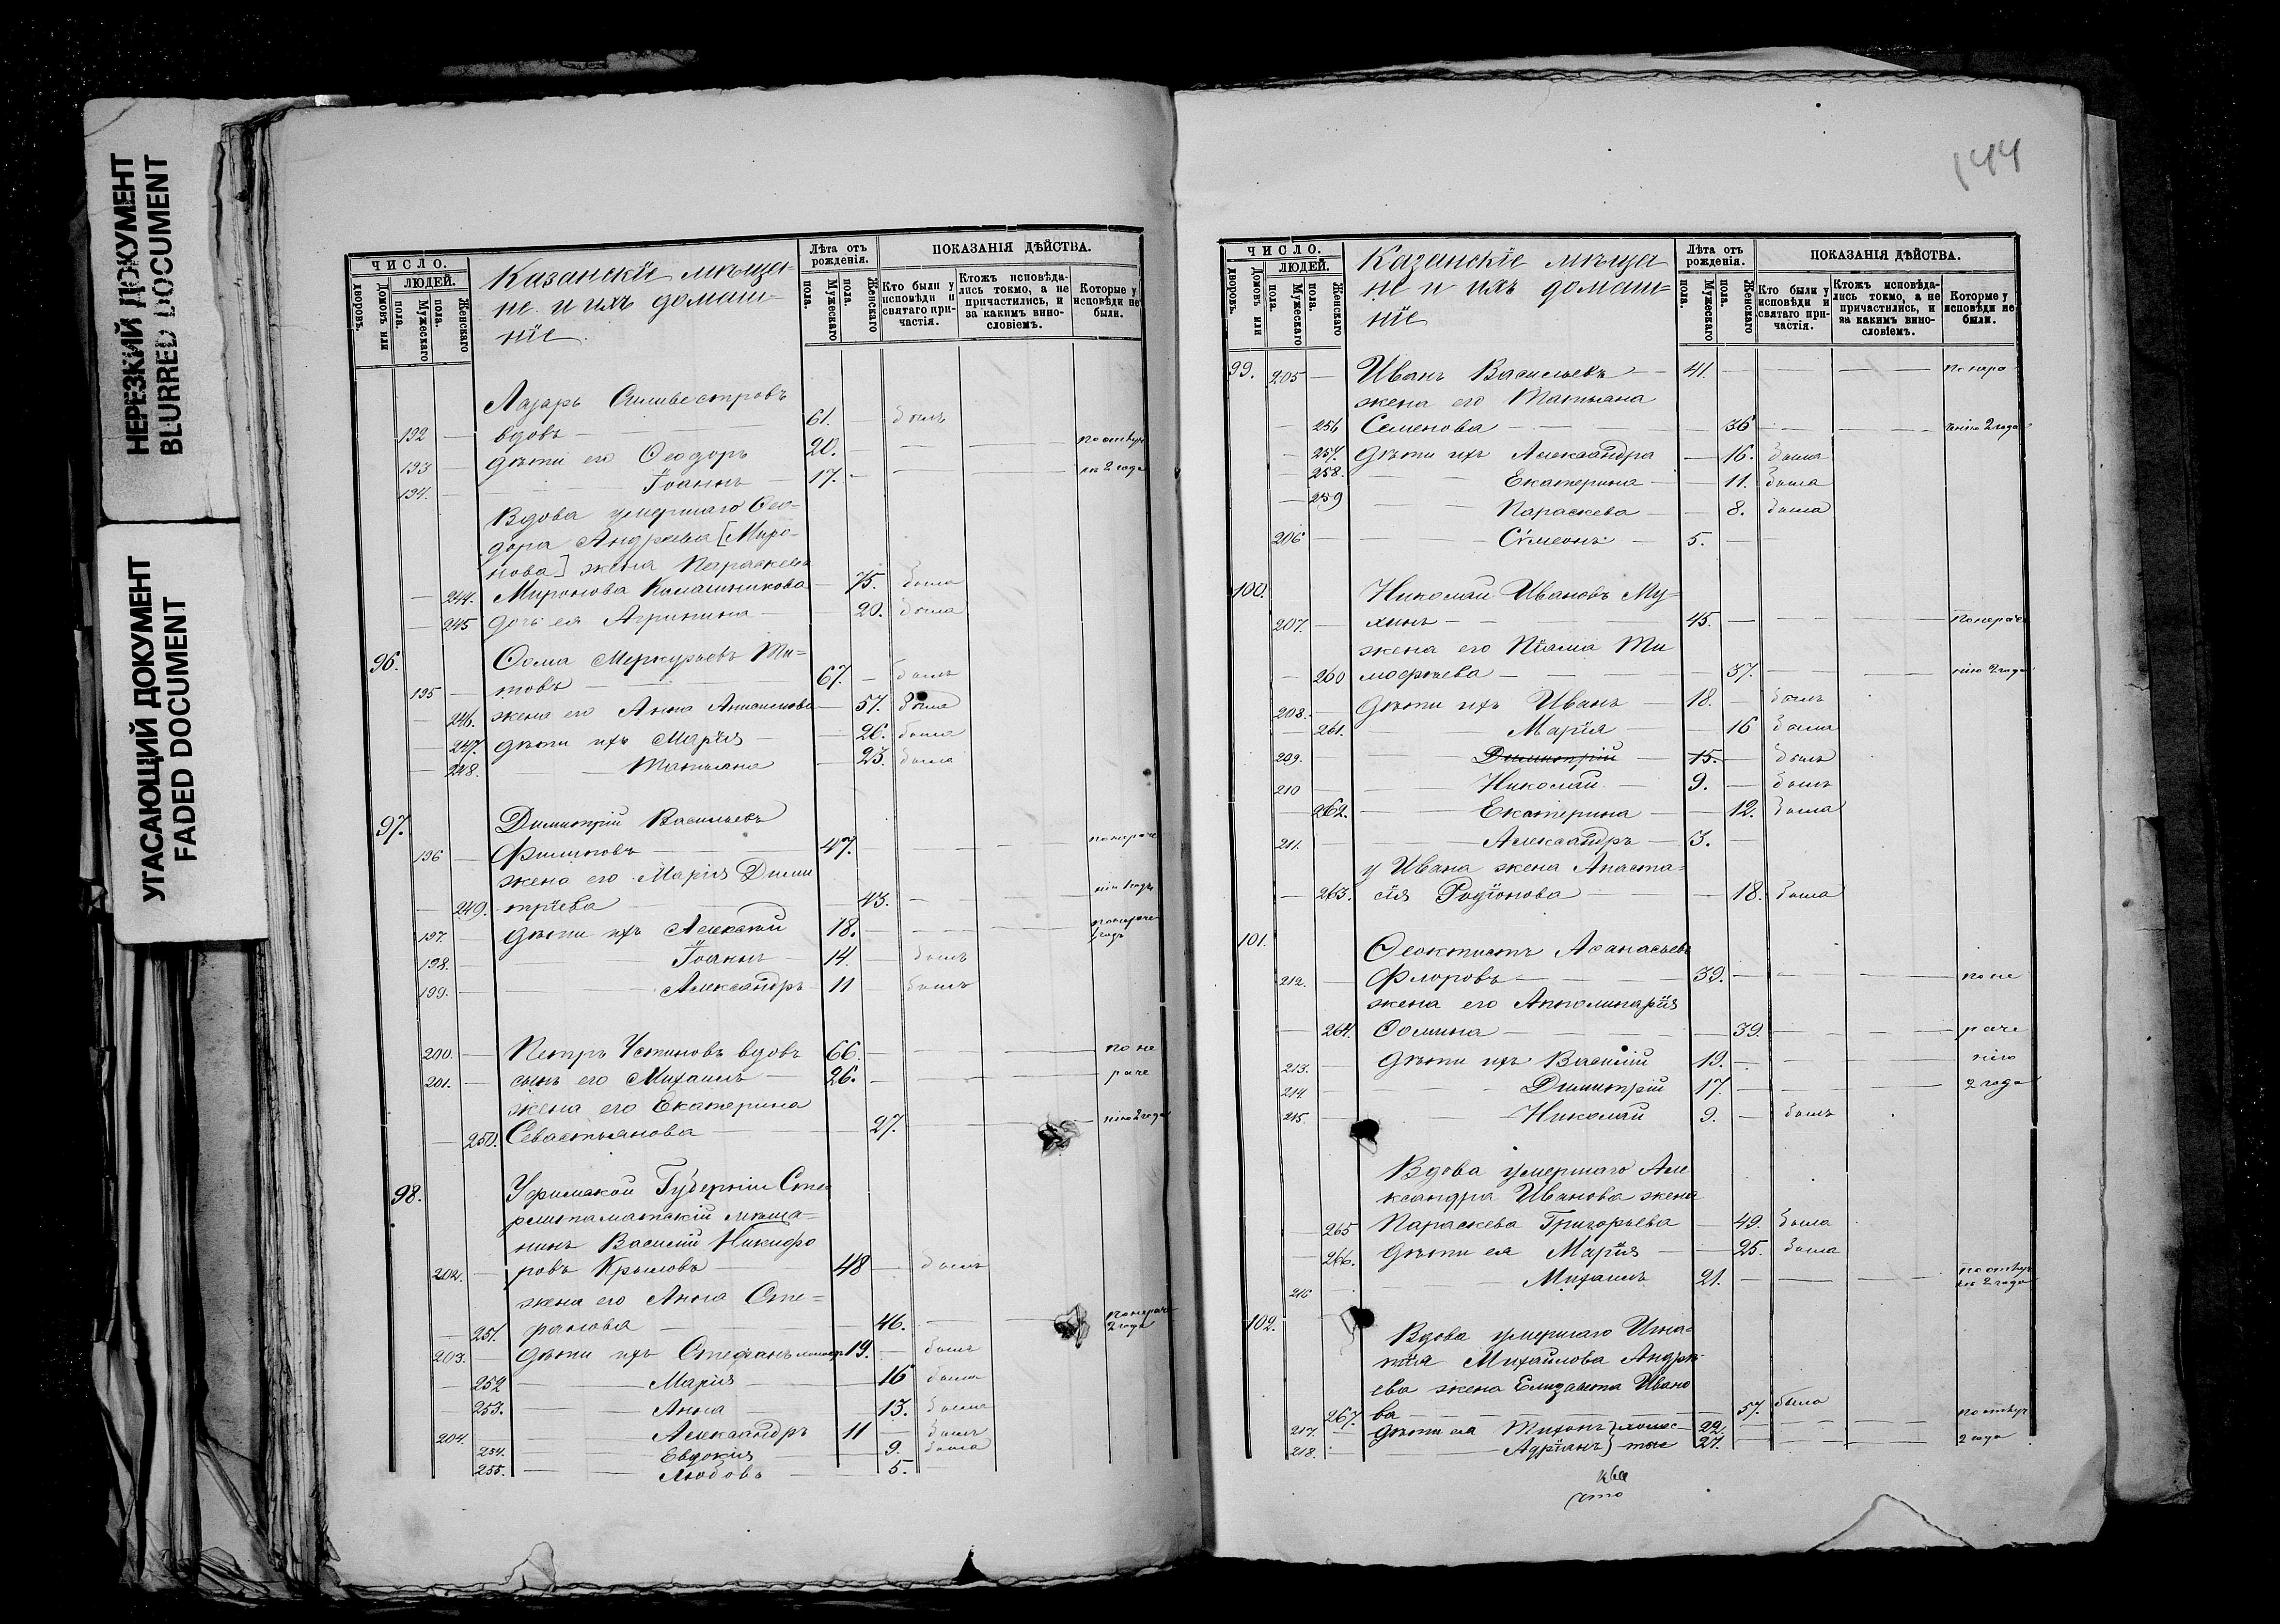 НЕРЕЗКИЙ ДОКУМЕНТ
BLURRED DOCUMENT
УГАСАЮЩИЙ ДОКУМЕНТ
FADED DOCUMENT
ЧИСЛО.
ЛЮДЕЙ.
Домовъ или дворовъ.
Мужескаго пола.
Женскаго пола.
Казанскіе мѣща-
не и ихъ домаш-
ніе.
Лѣта отъ рожденія.
Мужескаго пола.
Женскаго пола.
ПОКАЗАНІЯ ДѢЙСТВА.
Кто были у исповѣди и святаго причастія.
Ктожъ исповѣдались токмо, а не причастились, и за какимъ винословіемъ.
Которые у исповѣди не были.
Лазарь Сильвестровъ
192 — вдовъ — 61. былъ
193 — дѣти его Ѳеодоръ 20. — — — по отлуч
194. — — Іоаннъ — 17. — — — 2 года
Вдова умершаго Ѳео-
дора Андреева [Миро-
нова] жена Параскева
— 244. Миронова Калашникова — 75. была
— 245 дочь ея Агрипина — 20. была
96. Ѳома Меркурьевъ Ти-
195 — товъ — 67. — былъ
— 246. жена его Анна — 57. была
— 247. дѣти ихъ Марія — 26. была
— 248. — Татьяна — 23. была
97. Димитрій Васильевъ
196 — Филиповъ — 47. — — по нераче
жена его Марія Дими
— 249. тріева — 43. — — нію 1 годъ
197. — дѣти ихъ Алексѣй 18. — — по нераче 1 годъ
198. — — Іоаннъ — 14. — былъ
199. — — Александръ — 11 — былъ
200. — Петръ Устиновъ вдовъ 66. — — по не
201. — сынъ его Михаилъ — 26. — — раче
жена его Екатерина
— 250. Севастьянова — 27. — — нію 2 года
98. Уфимской Губерніи Сте
рлитаматскій мѣща-
нинъ Василій Никифо
202. — ровъ Крыловъ — 48 — былъ
жена его Анна Сте-
— 251. — 46. — — по нерач 2 года
203. — дѣти ихъ Стефанъ 19. — былъ
— 252 — Марія — 16 была
— 253. — Анна — 13. была
204. — Александръ 11 — былъ
254. — Евдокія — 9. была
255. — Любовь — 5.
144
ЧИСЛО.
ЛЮДЕЙ.
Домовъ или дворовъ.
Мужескаго пола.
Женскаго пола.
Казанскіе мѣща
не и ихъ домаш-
ніе
Лѣта отъ рожденія.
Мужескаго пола.
Женскаго пола.
ПОКАЗАНІЯ ДѢЙСТВА.
Кто были у исповѣди и святаго причастія.
Ктожъ исповѣдались токмо, а не причастились, и за какимъ винословіемъ.
Которые у исповѣди не были.
99. 205 — Иванъ Васильевъ — 41. — — по нера
жена его Татьяна
— 256 Семенова — 36 — — ченію 2 года
— 257. дѣти ихъ Александра — 16. была
— 258. — Екатерина — 11. была
— 259 — Параскева — 8. была
206 — Сѵмеонъ — 5. —
100. Николай Ивановъ Му-
207. — хинъ — 45. — — по нераче
жена его Піама Ти
— 260 моѳеева — 37. — нію 2 года
208. — дѣти ихъ Иванъ — 18. — былъ
— 261. — Марія — 16 была
209. — Димитрій — 15. — былъ
210 — Николай — 9. — былъ
— 262. — Екатерина — 12. была
211. — Александръ — 3. —
у Ивана жена Анаста-
— 263. сія Родіонова — 18. была
101. Ѳеоктистъ Аѳанасьевъ
212. — Флоровъ — 39. — — по не
жена его Апполинарія
— 264. Ѳомина — 39. — — раче
213. — дѣти ихъ Василій 19. — — нію
214 — Димитрій 17. — — 2 года
215. — Николай 9. — былъ
Вдова умершаго Але
ксандра Иванова жена
— 265 Параскева Григорьева — 49. была
— 266. дѣти ея Марія — 25. была
216 — Михаилъ 21. — — по отлуч 2 года
102. Вдова умершаго Игна-
тія Михайлова Андре-
ева жена Елизавета Ивано
267. ва — 57. была
217. — дѣти ея Тихонъ } холос 22. — — по отлуч
218. — Адріанъ } тые 27. — — 2 года